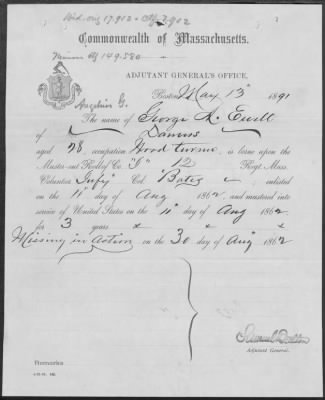 Wid. Orig 17.902 - Ctf 7.902
Commonwealth of Massachusetts.
Minor Ctf 149.580
ADJUTANT GENERAL'S OFFICE,
Boston May 13 1891
Angelius G.
The name of George A. Ewell
of Danvers
aged 28, occupation Wood turner, is borne upon the
Muster-out Rolls of Co. "G" 12 Regt. Mass.
Volunteer Infy Col. Bates, enlisted
on the 11 day of Aug 1862, and mustered into
service of United States on the 11 day of Aug 1862
for 3 years
Missing in Action, on the 30 day of Aug 1862
Samuel Dalton
Adjutant General.